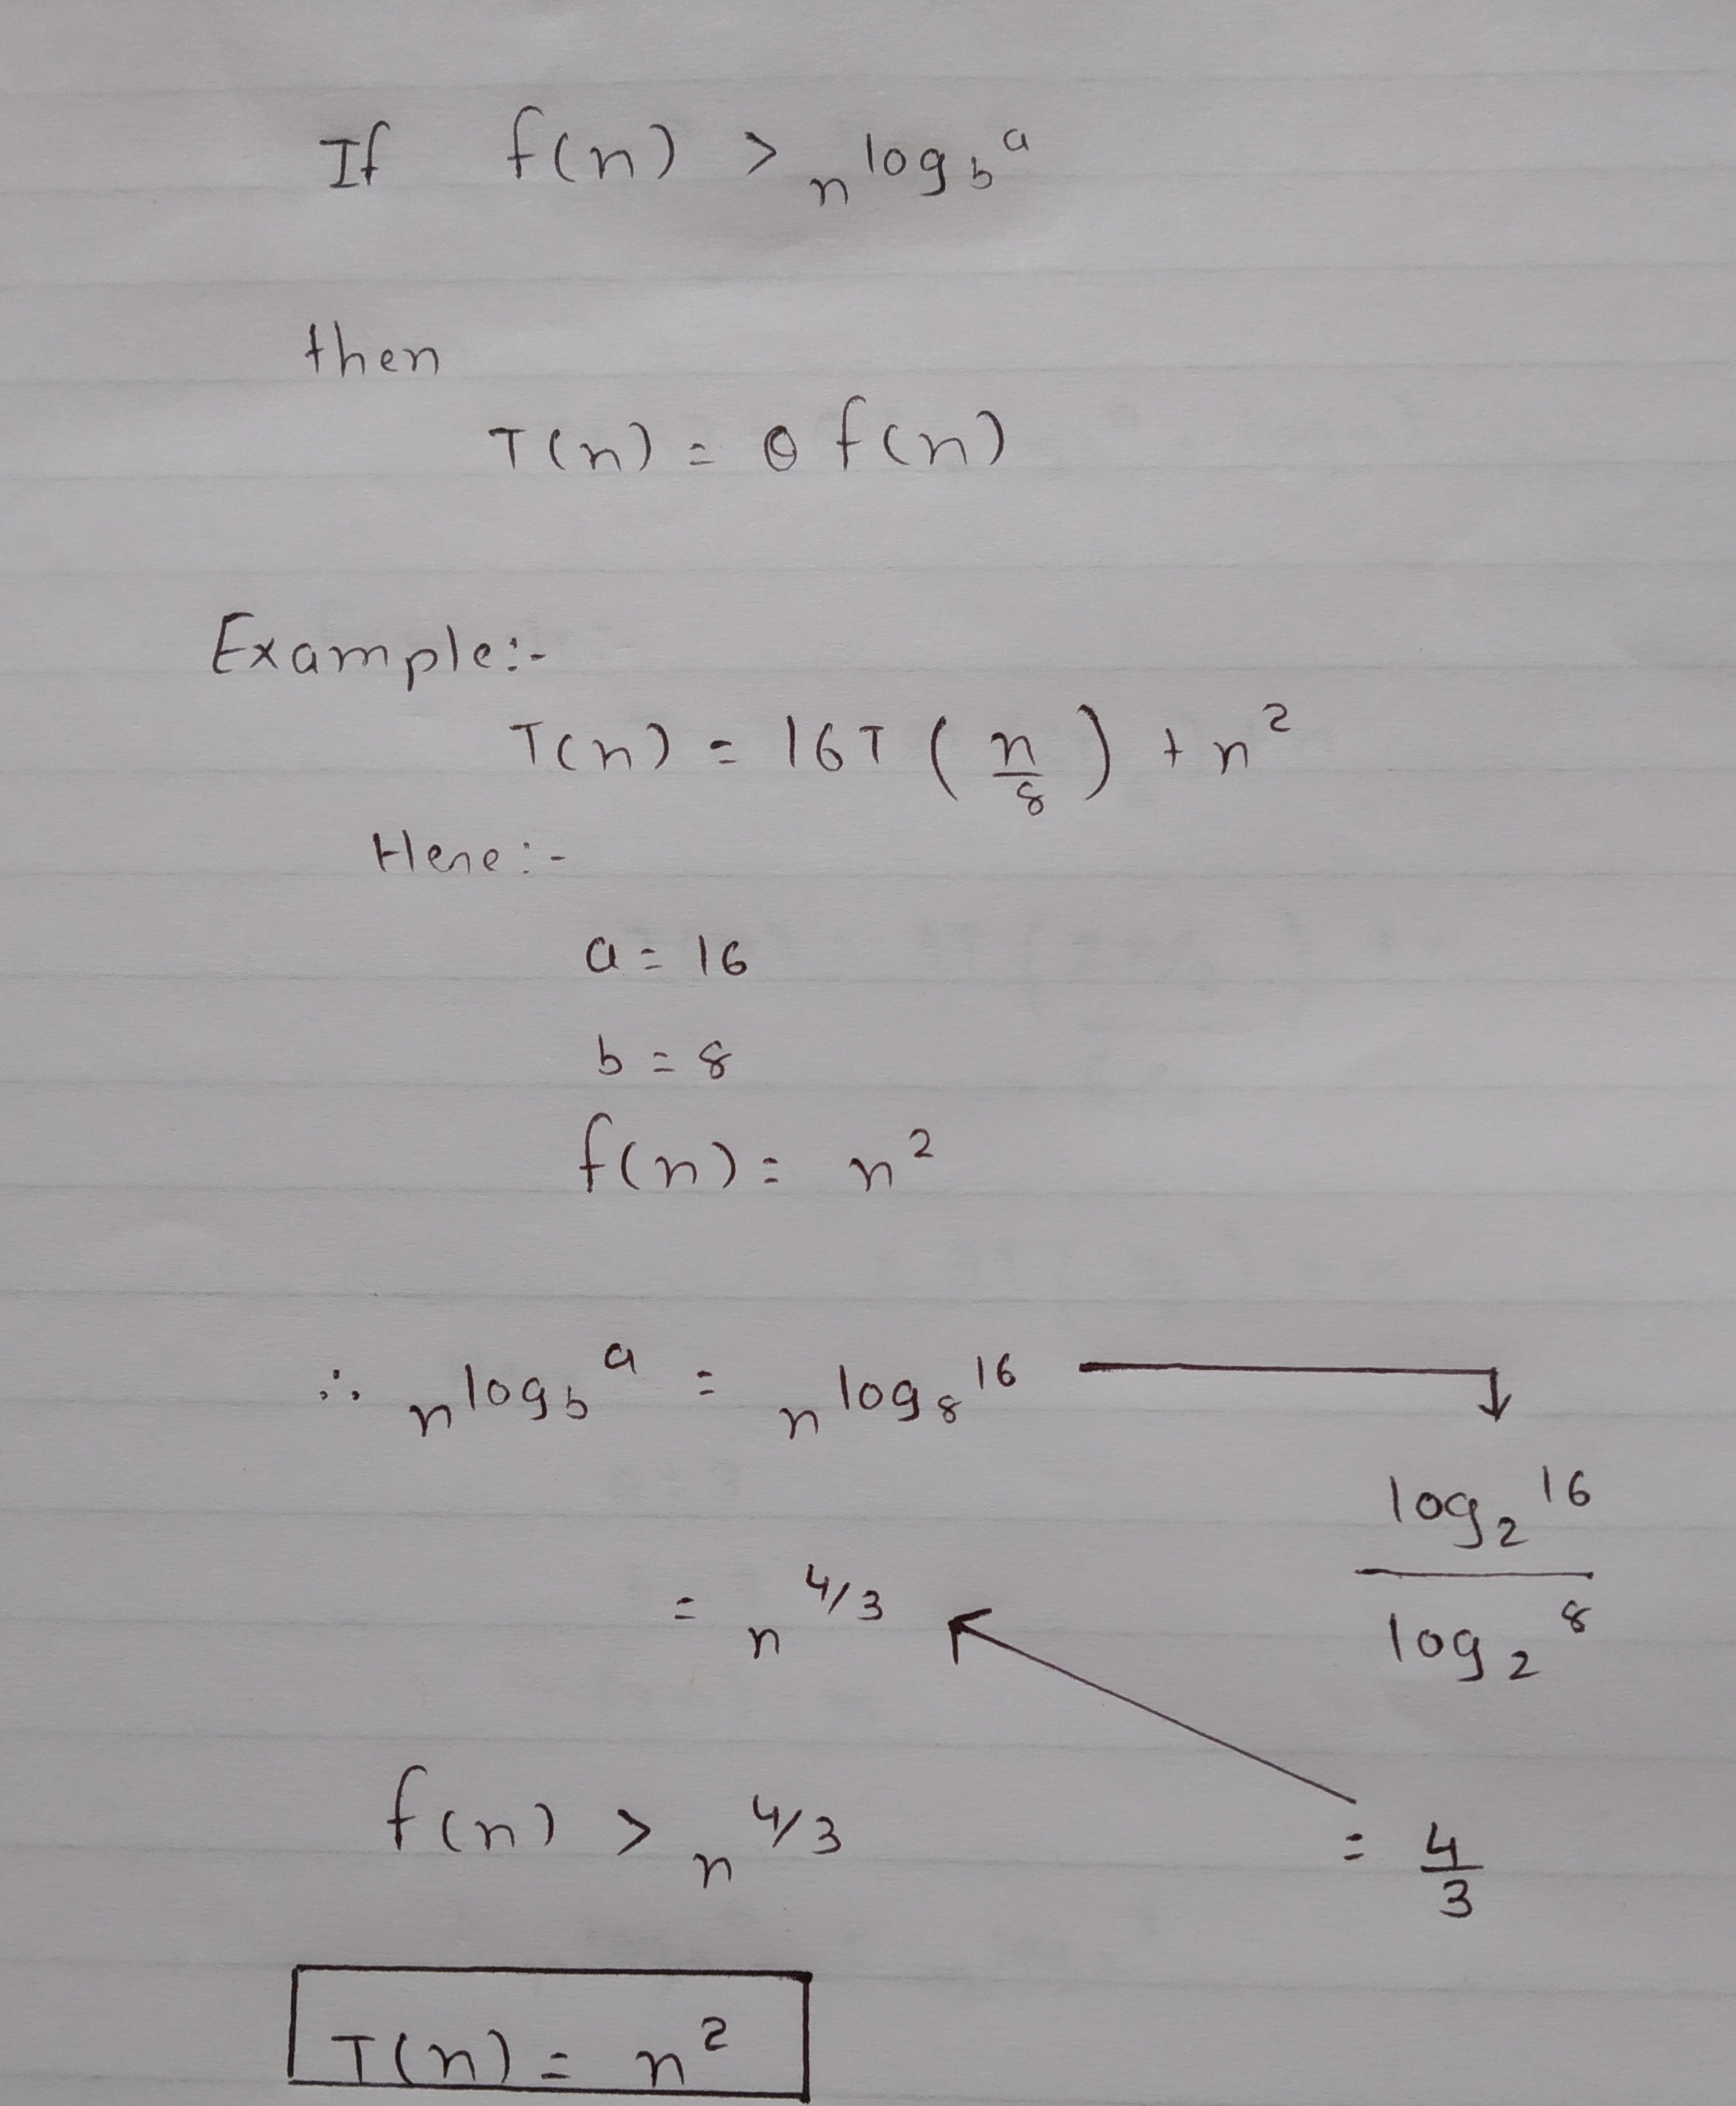 If f(n) > n^log_b^a
then
T(n) = Θ f(n)
Example:-
T(n) = 16T (n/8) + n²
Here:-
a = 16
b = 8
f(n) = n²
∴ n^log_b^a = n^log_8^16
log_2^16 / log_2^8
= n^4/3
f(n) > n^4/3
= 4/3
T(n) = n²